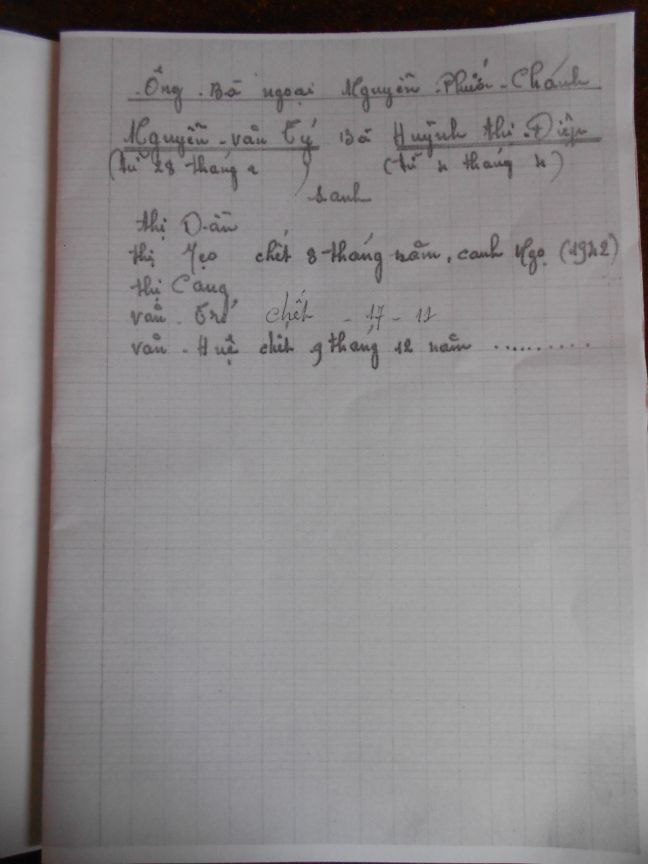 Ông Bà ngoại Nguyễn Phước Chánh
Nguyễn văn Tý Bà Huỳnh thị Điệp
(từ 28 tháng 2) (từ 4 tháng 4)
sanh
thị Dần
thị Mẹo chết 8 tháng năm, canh Ngọ (1942)
thị Cang
văn Trí chết - 17 - 11
văn Huệ chết 9 tháng 12 năm ..........